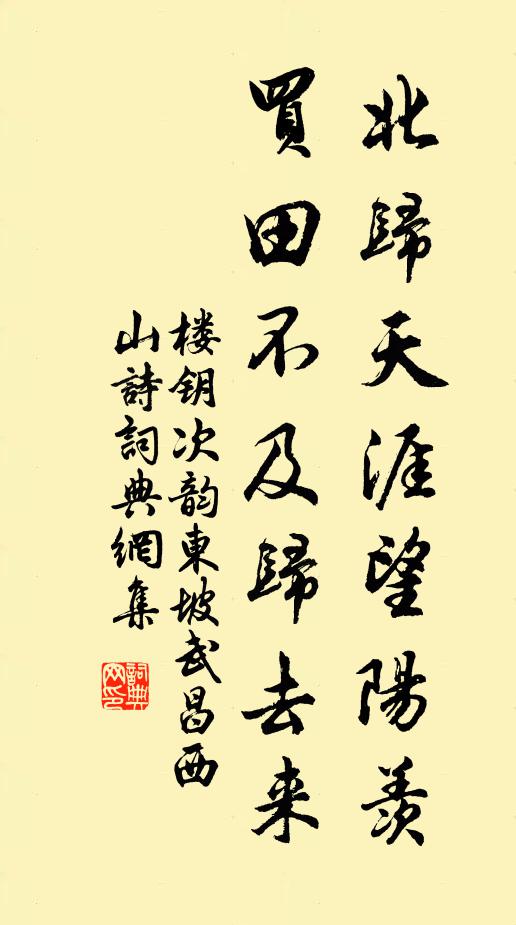 北歸天涯望陽羨
買田不及歸去来
楼钥次韵東坡武昌西
山詩詞典網集
詞典
网印